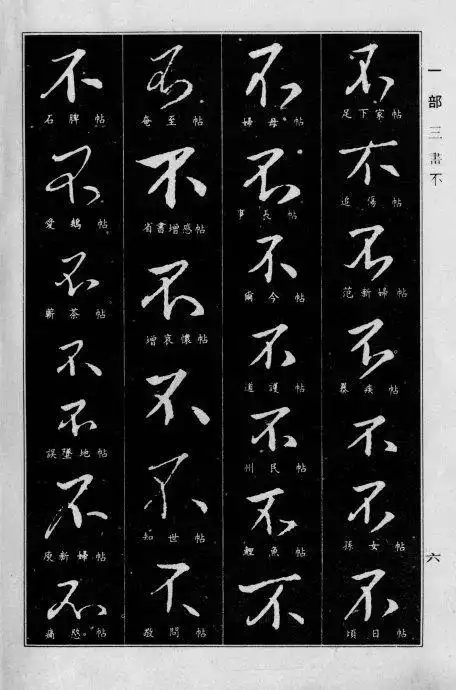 一部 三畫 不
六
不
足下家帖
不
追傷帖
不
范新婦帖
不
暴疾帖
不
不
孫女帖
不
頃日帖
不
婦母帖
不
長帖
不
今帖
不
道護帖
不
州民帖
不
鯉魚帖
不
不
奄至帖
不
省書增感帖
不
增哀懷帖
不
不
知世帖
不
敬問帖
不
石脾帖
不
愛鵝帖
不
蘄茶帖
不
不
誤墜地帖
不
庾新婦帖
不
痛愍帖